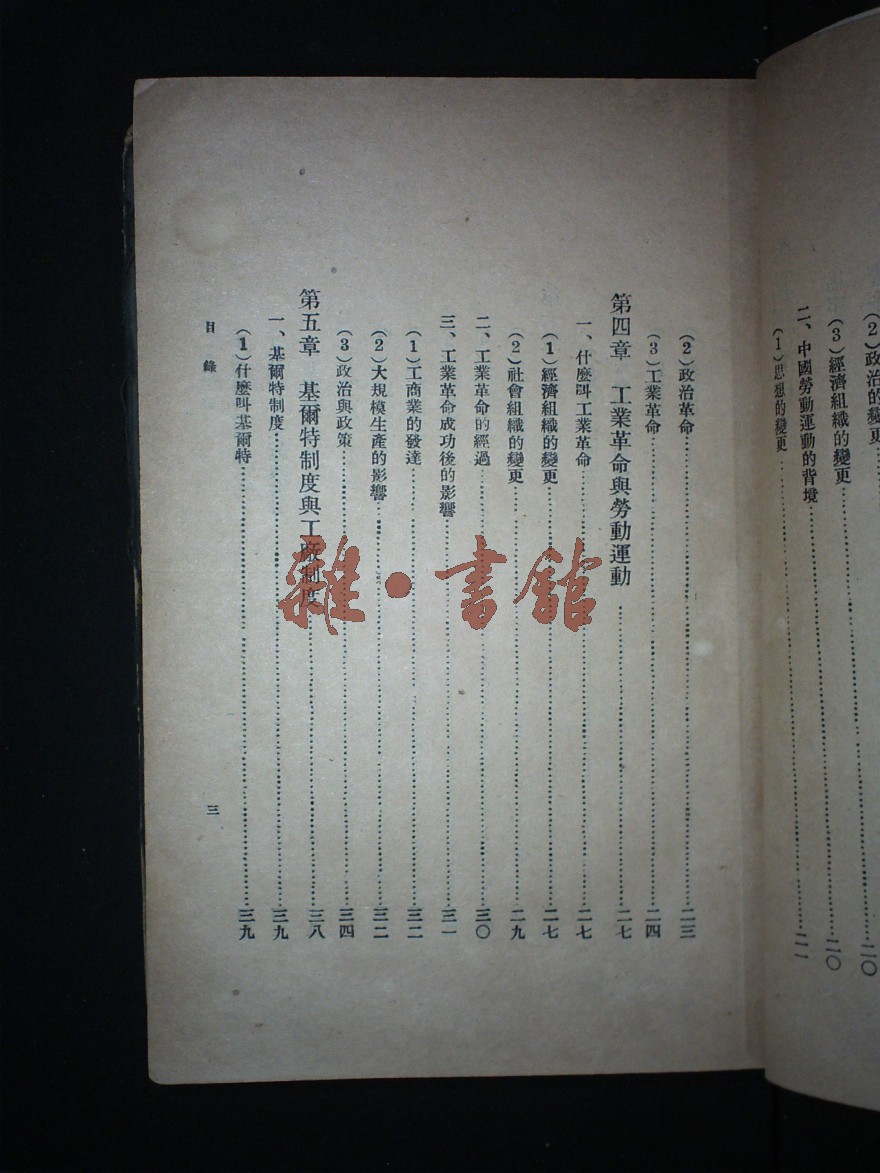 (2)政治的變更……二〇
(3)經濟組織的變更……二〇
二、中國勞動運動的背境
(1)思想的變更……二一
(2)政治革命……二三
(3)工業革命……二四
第四章 工業革命與勞動運動……二七
一、什麼叫工業革命……二七
(1)經濟組織的變更……二七
(2)社會組織的變更……二九
二、工業革命的經過……三〇
三、工業革命成功後的影響……三一
(1)工商業的發達……三二
(2)大規模生產的影響……三二
(3)政治與政策……三四
第五章 基爾特制度與工廠制度……三八
一、基爾特制度……三九
(1)什麼叫基爾特……三九
目錄 三
雜·書館